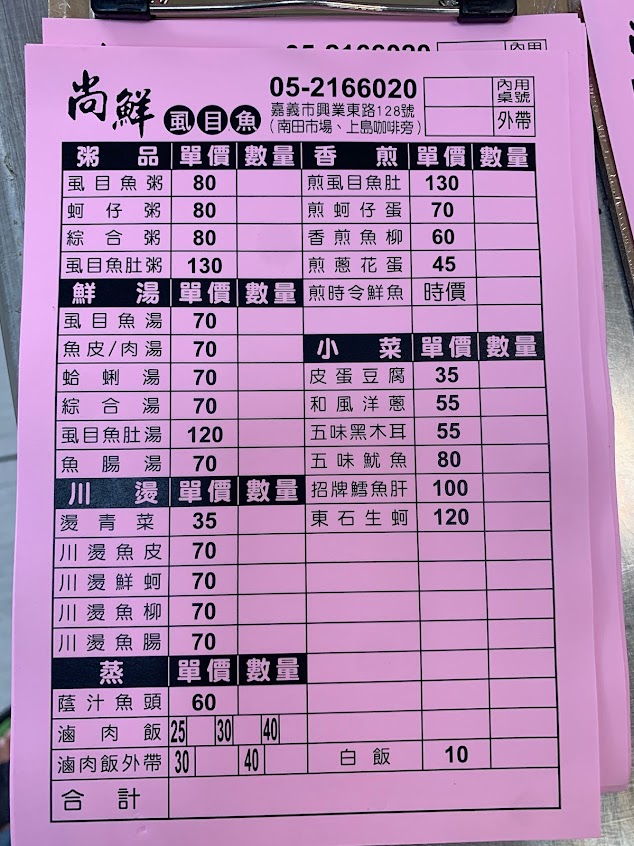 05-2166020
內用
尚鮮 虱目魚
05-2166020
嘉義市興業東路128號
(南田市場、上島咖啡旁)
內用桌號
外帶
粥品 單價 數量 香煎 單價 數量
虱目魚粥 80 煎虱目魚肚 130
蚵仔粥 80 煎蚵仔蛋 70
綜合粥 80 香煎魚柳 60
虱目魚肚粥 130 煎蔥花蛋 45
鮮湯 單價 數量 煎時令鮮魚 時價
虱目魚湯 70
魚皮/肉湯 70 小菜 單價 數量
蛤蜊湯 70 皮蛋豆腐 35
綜合湯 70 和風洋蔥 55
虱目魚肚湯 120 五味黑木耳 55
魚腸湯 70 五味魷魚 80
川燙 單價 數量 招牌鱈魚肝 100
燙青菜 35 東石生蚵 120
川燙魚皮 70
川燙鮮蚵 70
川燙魚柳 70
川燙魚腸 70
蒸 單價 數量
蔭汁魚頭 60
滷肉飯 25 30 40
滷肉飯外帶 30 40 白飯 10
合計